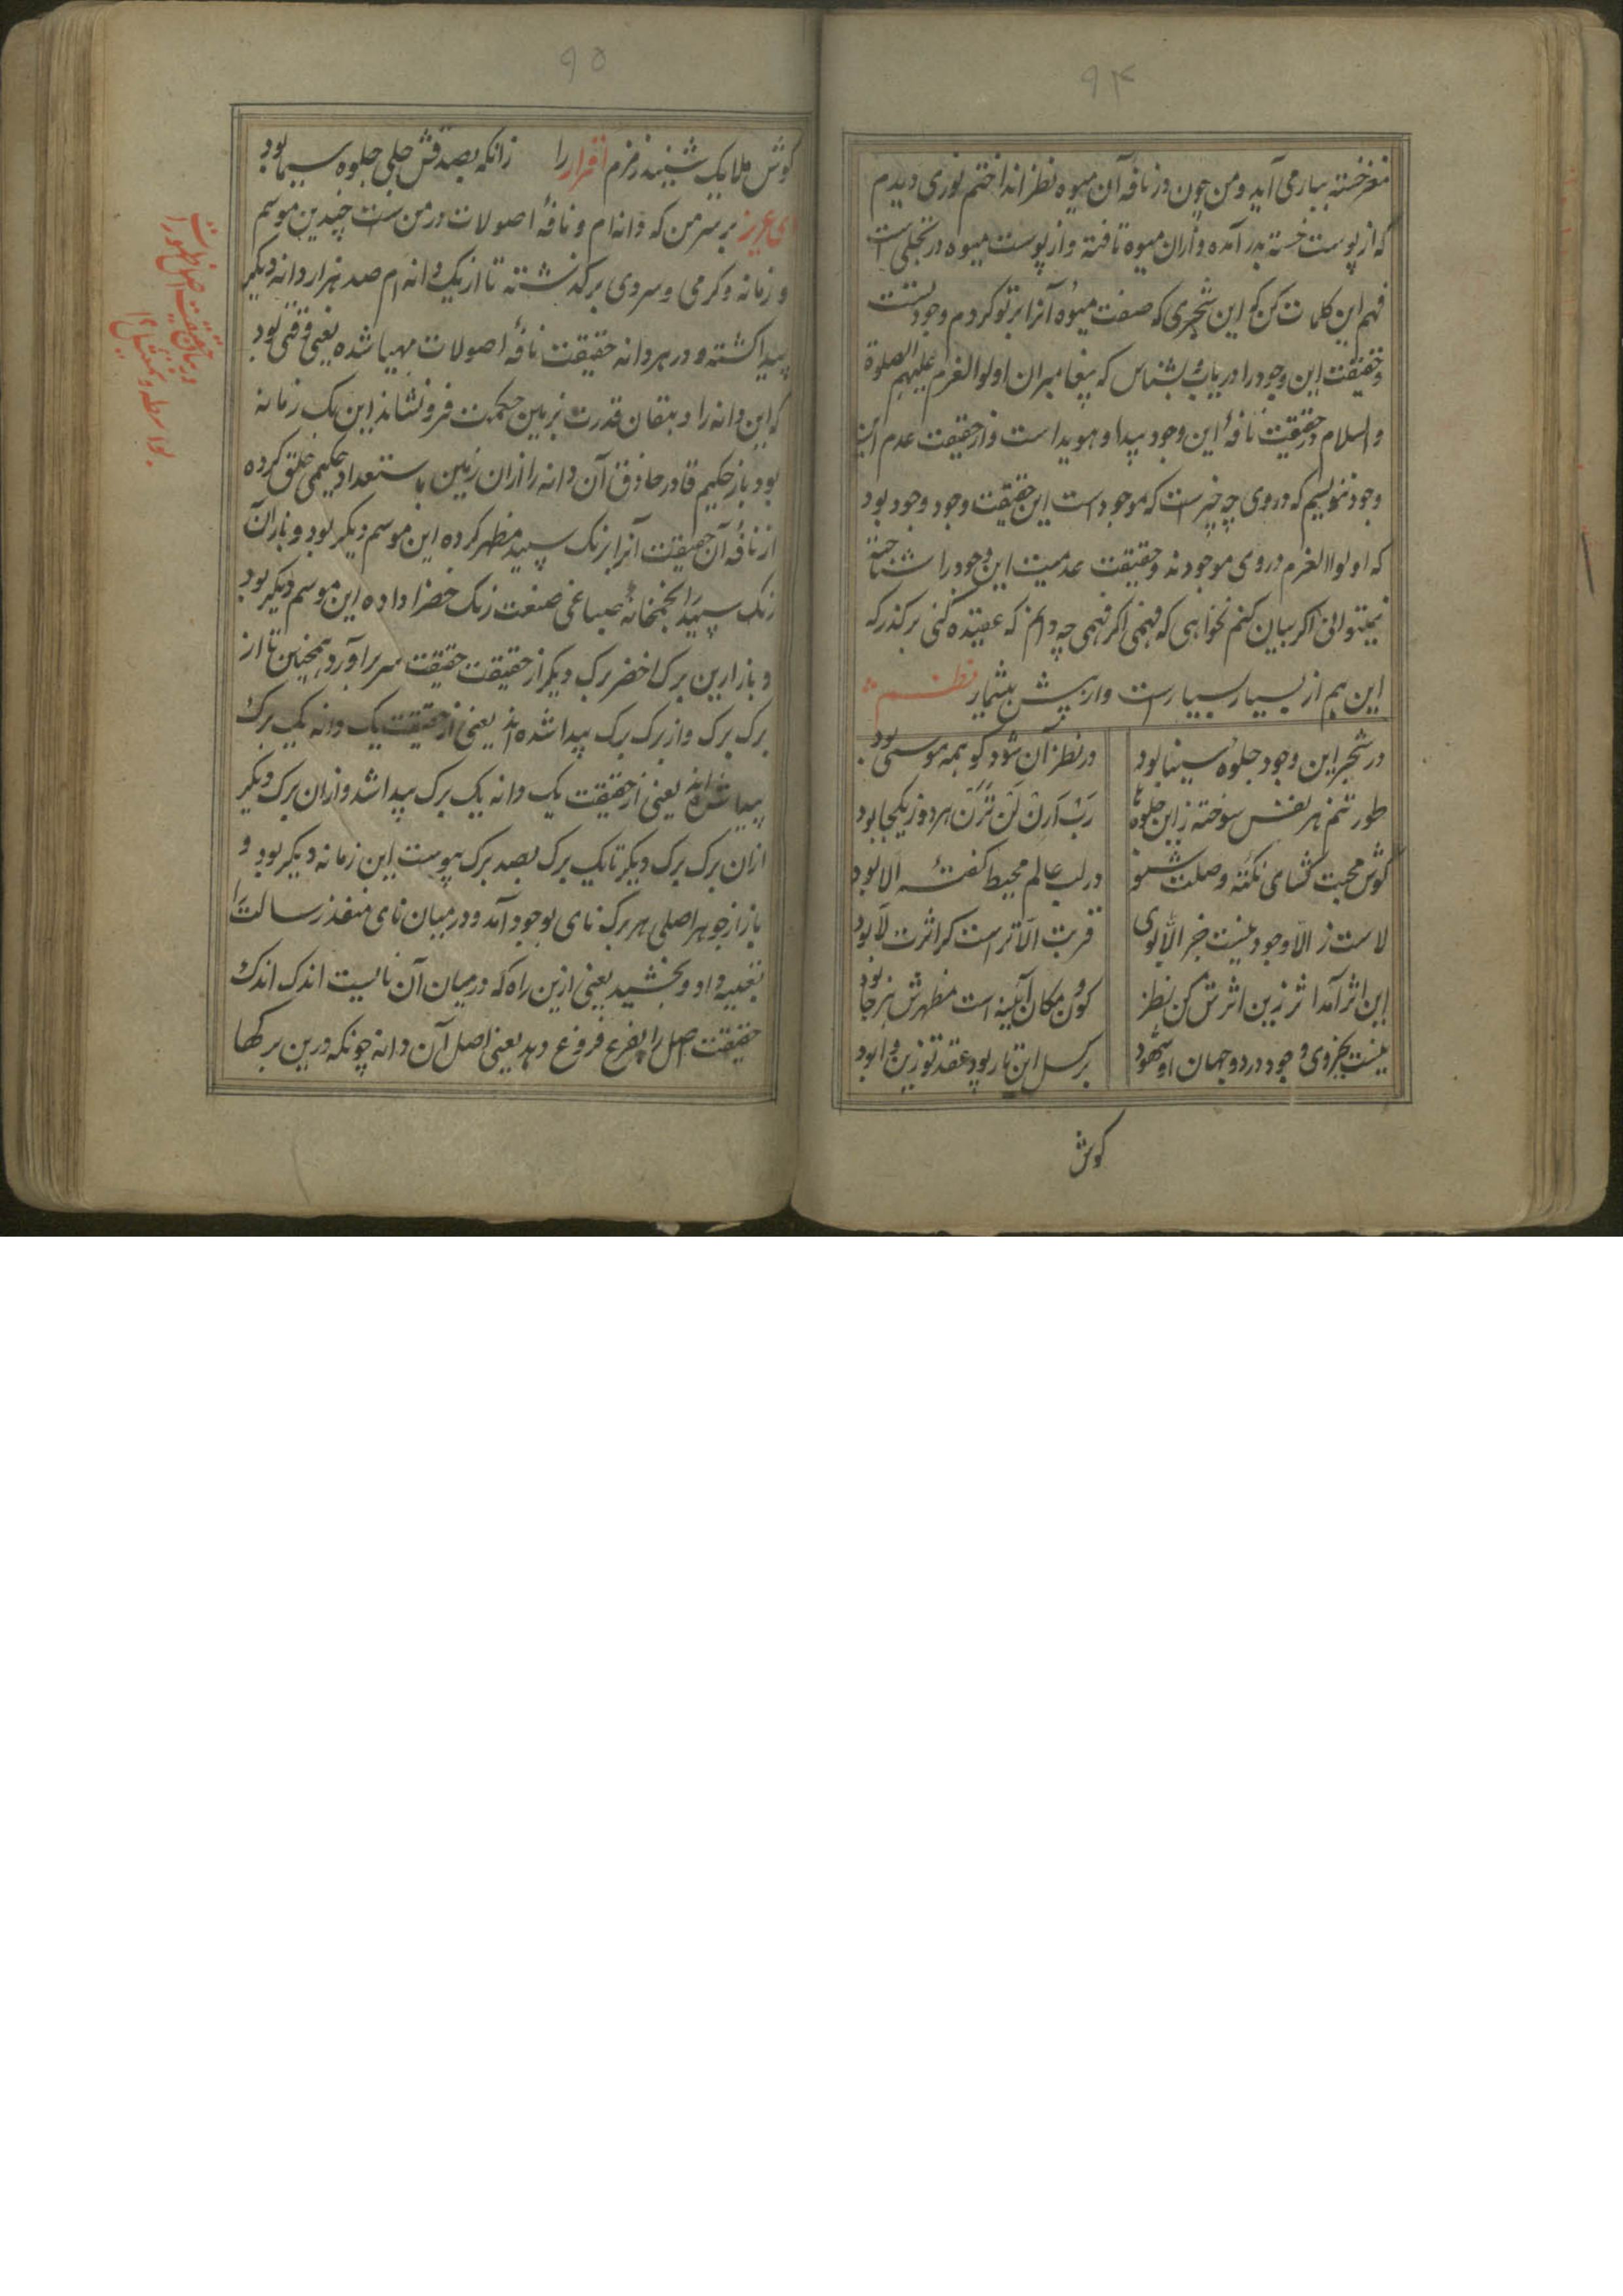 ۹۴
مغز خسته ببار می آید و من چون در نافه آن میوه نظر انداختم نوری دیدم
که از پوست خسته بدر آمده و از ان میوه تافته و از پوست میوه در تجلی است
فهم این کلمات کن کو این شجری که صفت میوه آنرا بر تو کردم وجود تست
و حقیقت این وجود را دریاب و بشناس که پیغامبران اولوالعزم علیهم الصلوة
والسلام در حقیقت نافهٔ این وجود پیدا و هویدا است و از حقیقت عدم این
وجود ننویسم که در وی چه چیز است که موجود است این حقیقت وجود وجود بود
که اولوالعزم در وی موجودند و حقیقت عدمیت این وجود را شناخته
نمیتوانی اکر بیان کنم نخواهی که فهمی اکر فهمی چه دانم که عقیده کنی برکذر که
این هم از بسیار بسیارست و از بیش بیشمار نظم
در شجر این وجود جلوه سینا بود
در نظر آن شود کو همه موسی بود
طور تنم هر نفس سوخته زاین جلوه ها
رَبِّ اَرِنْ لَنْ تَرَنْ هر دو ز یکجا بود
کوش محبت کشای نکته وصلت شنو
در لب عالم محیط کفته الا بود
لاست ز الا وجود نیست خبر الا بوی
قربت الا تراست کر اثرت لا بود
این اثر آمد اثر زین اثرش کن نظر
کون و مکان آینه است مظهرش هر جا بود
نیست بجز وی وجود در دو جهان او شهود
برکسل این تار پود عقد تو زین وا بود
کوش
۹۵
کوش ملایک شنید زمزم اقرار را زانکه بصد قش جلی جلوه سیما بود
ای عزیز بر سر من که دانه ام و نافهٔ اصولات در من ست چندین موسم
و زمانه و کرمی و سردی برکذشته تا از یک دانه ام صد هزار دانه دیکر
پیدا کشته و در هر دانه حقیقت نافهٔ اصولات مهیا شده یعنی وقتی بود
که این دانه را دهقان قدرت بزمین حکمت فرو نشاند این یک زمانه
بود باز حکیم قادر حاذق آن دانه را از ان زمین باستعداد حکیمی خلق کرده
از نافهٔ آن حقیقت آنرا برنک سپید مظهر کرده این موسم دیکر بود و باز آن
رنک سپید را بخمخانهٔ صباغی صنعت رنک خضرا داده این موسم دیکر بود
و باز ازین برک اخضر برک دیکر از حقیقت حقیقت سر بر آورد و همچنین تا از
برک برک و از برک برک پیدا شده اند یعنی از حقیقت یک دانه یک برک
پیدا شده اند یعنی از حقیقت یک دانه یک برک پیدا شد و از ان برک دیکر
از ان برک برک دیکر تا یک برک بصد برک پیوست این زمانه دیکر بود و
باز از جوهر اصلی هر برک نای بوجود آمد و در میان نای منفذ رسالت را
تعبیه داد و بخشید یعنی ازین راه که در میان آن نالیست اندک اندک
حقیقت اصل را بفرع فروغ دهد یعنی اصل آن دانه چونکه درین برکها